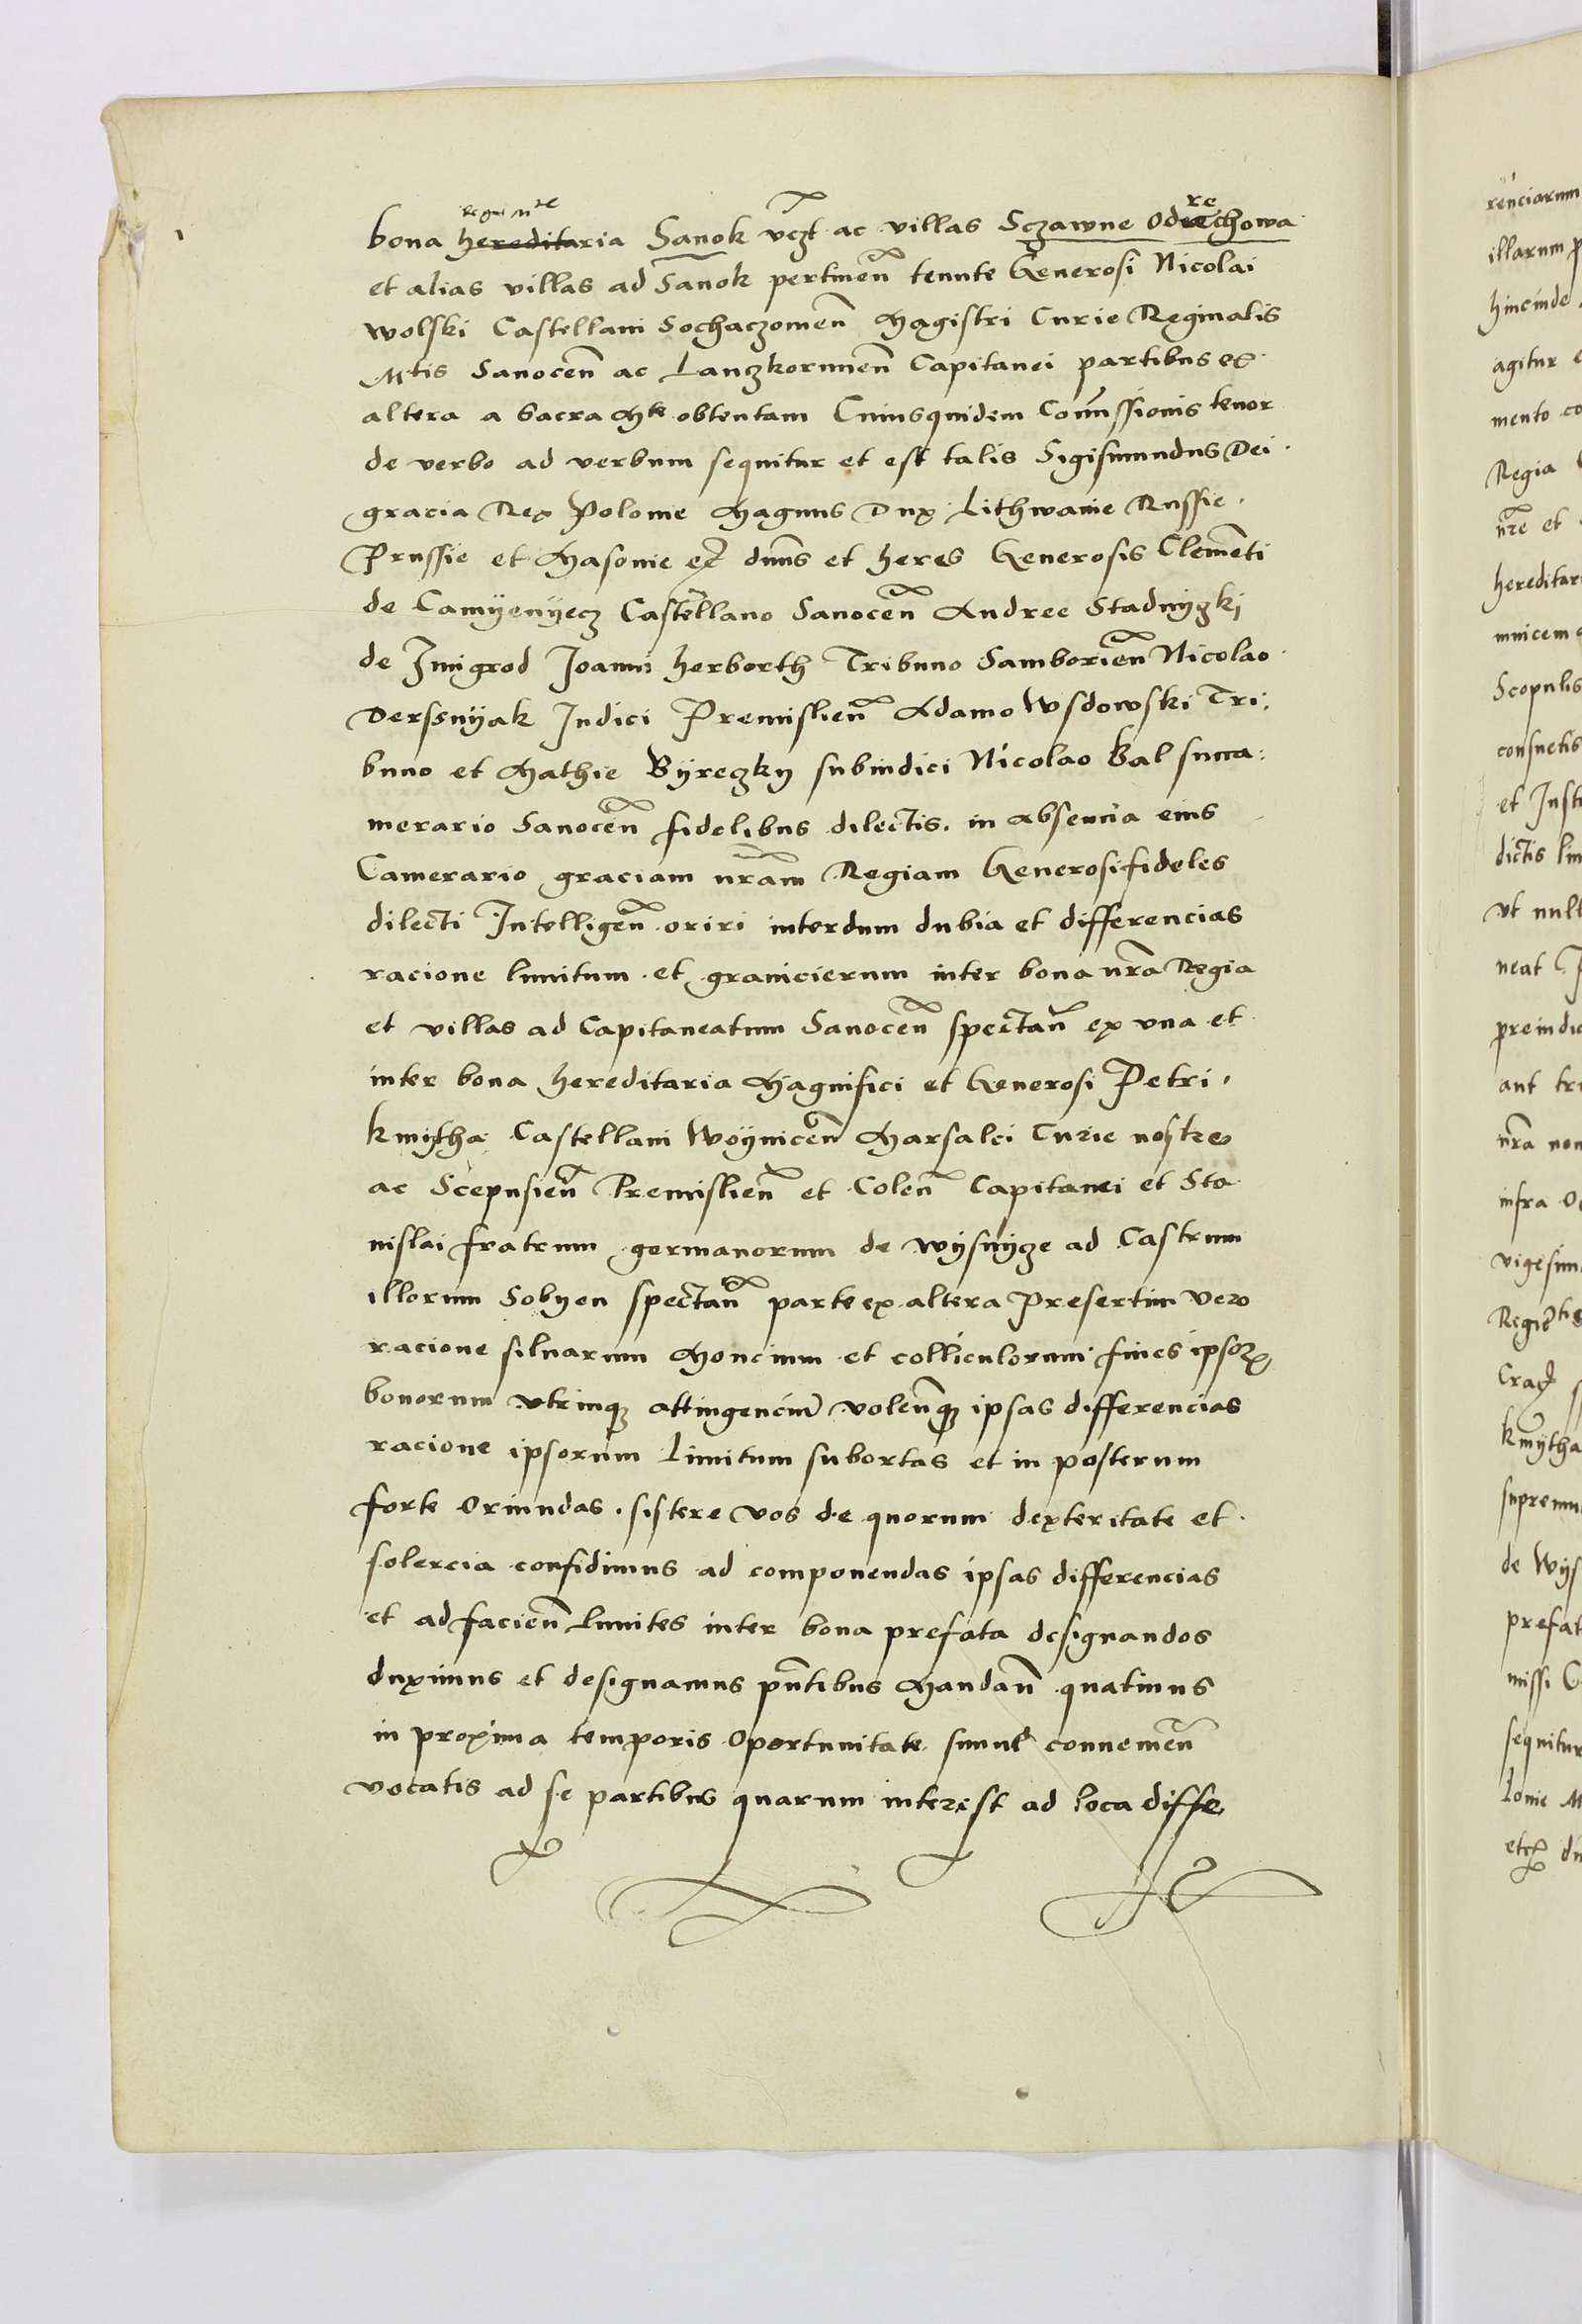 Regni nre
re
bona hereditaria Sanok vczt ac villas Sczawne Odrechowa
et alias villas ad Sanok pertinen tenute Generosi Nicolai
wolski Castellani Sochaczowien Magistri Curie Reginalis
Mtis Sanocen ac Lanczkorunen Capitanei partibus ex
altera a Sacra Mte obtentam Cuiusquidem Comissionis tenor
de verbo ad verbum sequitur et est talis Sigismundus Dei
gracia Rex Polonie Magnus Dux Lithwanie Russie
Prussie et Masouie etc dnus et heres Generosis Clementi
de Camyenyecz Castellano Sanocen Andree Stadnyzkj
de Zmigrod Joanni herborth Tribuno Samborien Nicolao
Derssnyak Iudici Premislien Adamo Wsdowski Tri:
buno et Mathie Byreczky subiudici Nicolao Bal succa:
merario Sanocen fidelibus dilectis. in absencia eius
Camerario graciam nram Regiam Generosi fideles
dilecti Intelligen oriri interdum dubia et differencias
racione limitum et granicierum inter bona nra Regia
et villas ad Capitaneatum Sanocen spectan ex vna et
inter bona hereditaria Magnifici et Generosi Petri
kmytha Castellani Woynicen Marsalci Curie nostre
ac Scepusien Premislien et Colen Capitanei et Sta
nislai fratrum germanorum de wysnyze ad Castrum
illorum Sobyen spectan parte ex altera Presertim vero
racione siluarum Moncium et colliculorum fines ipsor
bonorum vtrinq attingenciu volenq ipsas differencias
racione ipsorum limitum subortas et in posterum
forte Oriundas. sistere vos de quorum dexteritate et
solercia confidimus ad componendas ipsas differencias
et ad facien limites inter bona prefata designandos
duximus et designamus pntibus Mandan quatinus
in proxima temporis Oportunitate simul conuenien
vocatis ad se partibus quarum interest ad loca diffe
renciarum
illarum
hincinde
agitur
mento
Regia
nre et
hereditar
Scopulis
consuetis
et
dictis
vt null
neat
nra non
infra
de Wys
prefat
missi
sequitur